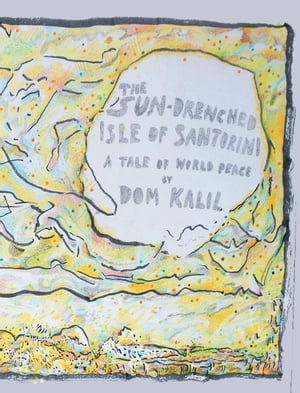 THE
SUN-DRENCHED
ISLE OF SANTORINI
A TALE OF WORLD PEACE
BY
DOM KALIL